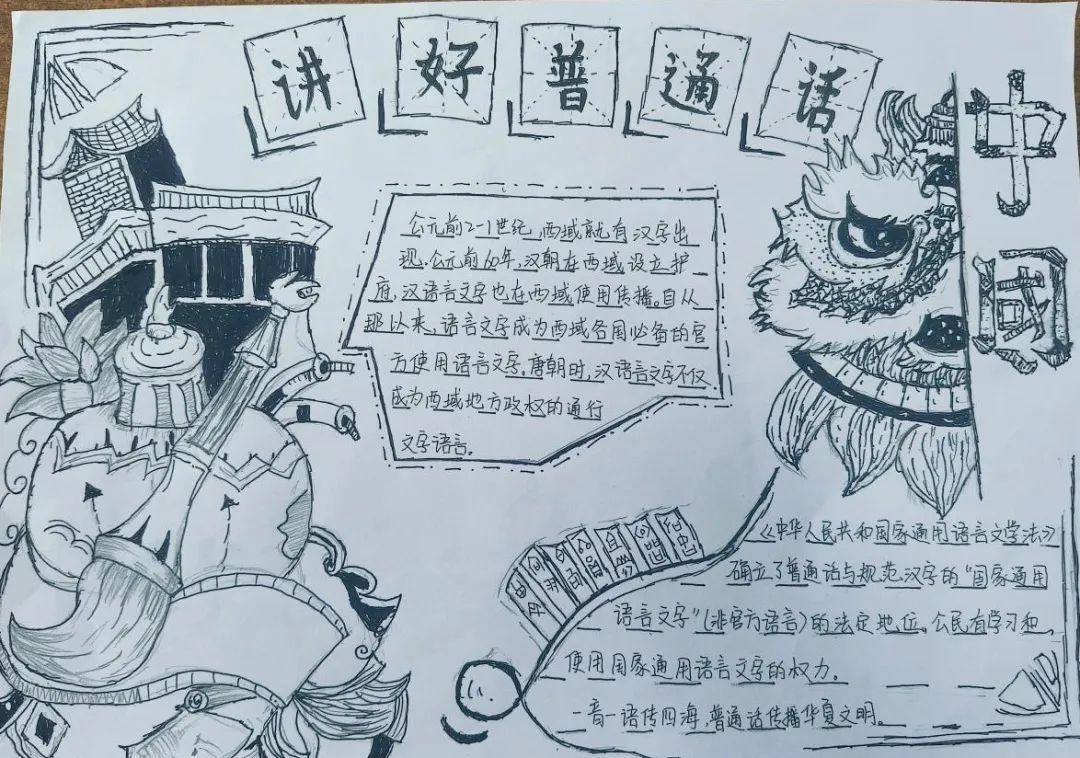 讲好普通话
中国
公元前2-1世纪,西域就有汉字出
现.公元前60年,汉朝在西域设立护
府,汉语言文字也在西域使用传播。自从
那以来,语言文字成为西域各国必备的官
方使用语言文字。唐朝时,汉语言文字不仅
成为西域地方政权的通行
文字语言。
《中华人民共和国家通用语言文学法》
确立了普通话与规范汉字的“国家通用
语言文字”(非官方语言)的法定地位。公民有学习和
使用国家通用语言文字的权力。
一音一语传四海,普通话传播华夏文明。